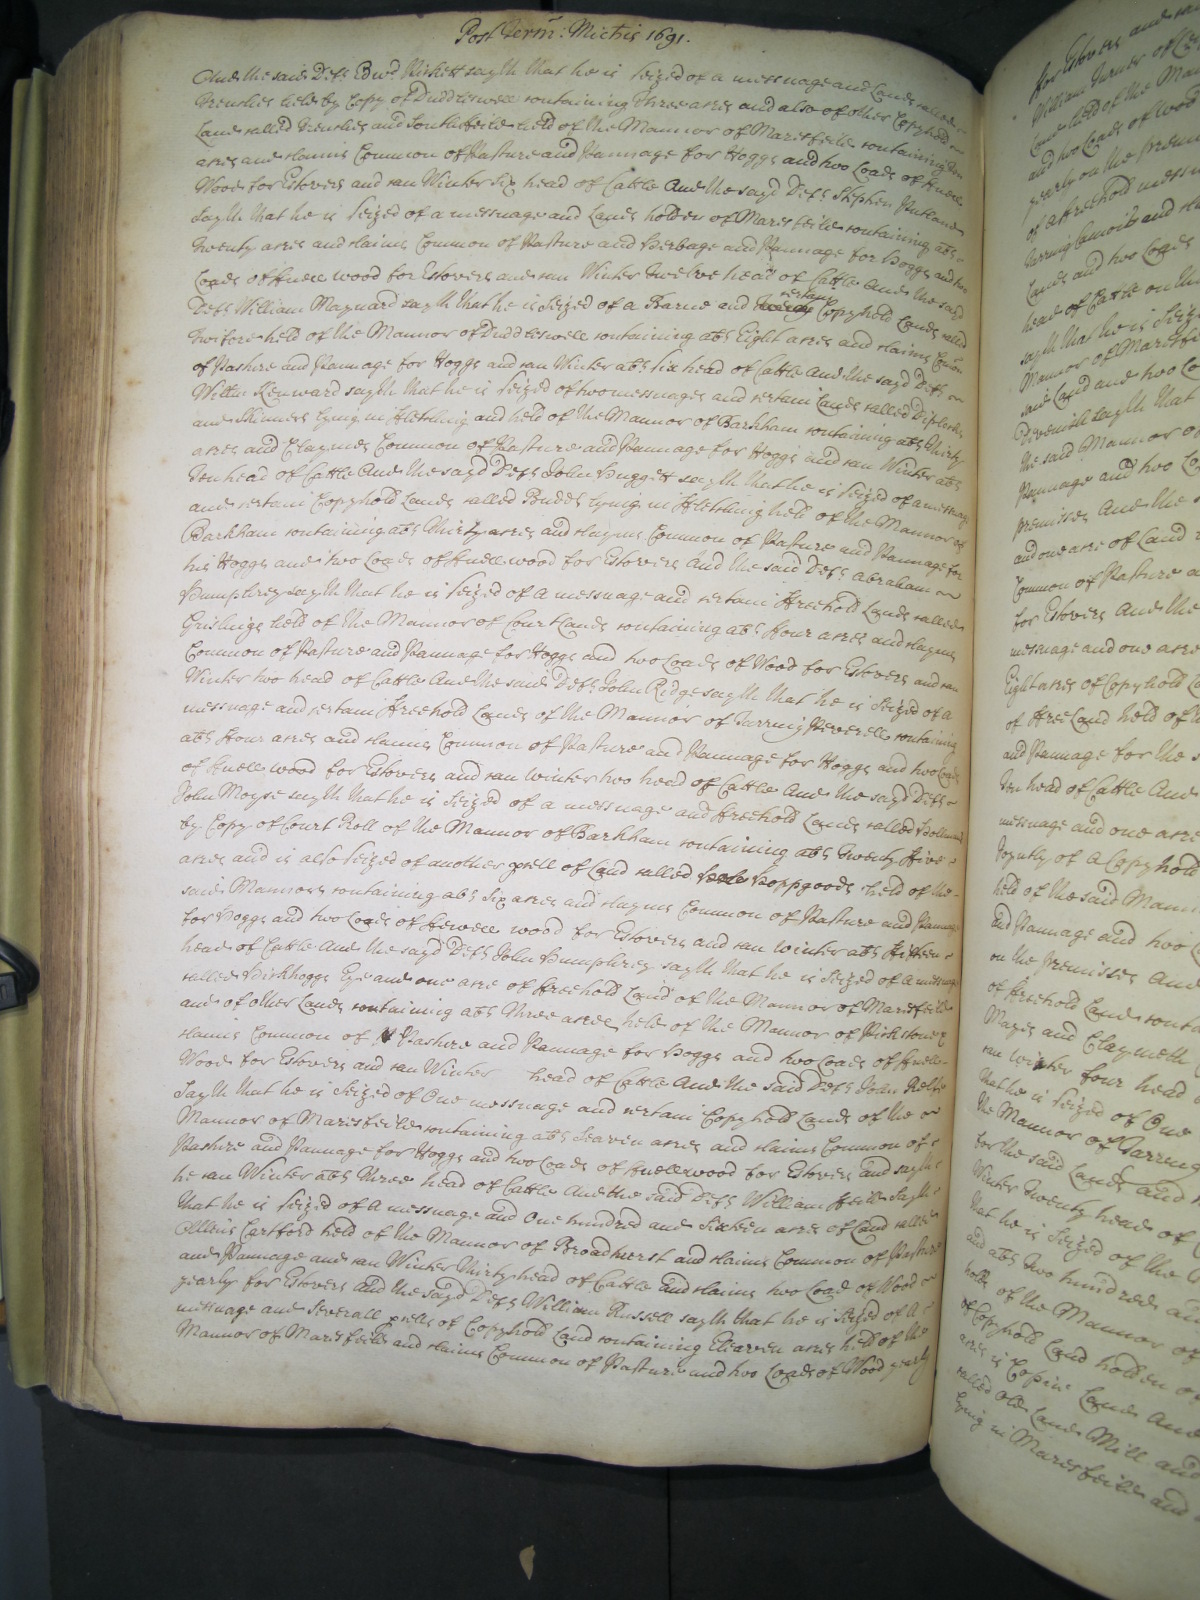 Post Term: Michis 1691.
And the said Deft Edwd Rickett sayth that he is Seized of a messuage and Lands called
Frenches held by Copy of Duddleswell containing Three acres and also of other Copyhold
Land called Frenches and Southfeild held of the Mannor of Maresfeild containing Ten
acres and claims Common of Pasture and Pannage for Hoggs and two Loads of ffuell
Wood for Estovers and can Winter Six head of Cattle And the sayd Deft Stephen Putland
Sayth that he is Seized of a messuage and Lands holden of Maresfeild containing abt
Twenty acres and claims Common of Pasture and Herbage and Pannage for Hoggs and two
Loads of ffuell wood for Estovers and can Winter Twelve head of Cattle And the said
Deft William Maynard sayth that he is Seized of a Barne and certain Copyhold Lands called
held of the Mannor of Duddleswell containing abt Eight acres and claims Comon
of Pasture and Pannage for Hoggs and can Winter abt Six head of Cattle And the sayd Deft
Willm Kenward sayth that he is Seized of two messuages and certain Lands called
and Skinners Lying in ffletching and held of the Mannor of Barkham containing abt Thirty
acres and Claymes Common of Pasture and Pannage for Hoggs and can Winter abt
Ten head of Cattle And the sayd Deft John Huggett sayth that he is Seized of a messuage
and certain Copyhold Lands called Budds Lying in ffletching held of the Mannor of
Barkham containing abt Thirty acres and claymes Common of Pasture and Pannage for
his Hoggs and two Loads of ffuell wood for Estovers And the said Deft Abraham
Humphrey sayth that he is Seized of a messuage and certain ffreehold Lands called
Grislings held of the Mannor of Courtlands containing abt ffour acres and claymes
Common of Pasture and Pannage for Hoggs and two Loads of Wood for Estovers and can
Winter two head of Cattle And the said Deft John Ridge sayth that he is Seized of a
messuage and certain ffreehold Lands of the Mannor of Tarring Peverell containing
abt ffour acres and claims Common of Pasture and Pannage for Hoggs and two Loads
of ffuell wood for Estovers and can winter two head of Cattle And the sayd Deft
John Moyse sayth that he is Seized of a messuage and ffreehold Lands called
by Copy of Court Roll of the Mannor of Barkham containing abt Twenty ffive
acres and is also Seized of another pcell of Land called Hoppgoods held of the
said Mannors containing abt Six acres and claymes Common of Pasture and Pannage
for Hoggs and two Loads of ffewell wood for Estovers and can winter abt ffifteen
head of Cattle And the sayd Deft John Humphrey sayth that he is Seized of a messuage
called Pickhoggs Eye and one acre of ffreehold Land of the Mannor of Maresfeild
and of other Lands containing abt Three acres held of the Mannor of
claims Common of Pasture and Pannage for Hoggs and two Loads of ffuell
Wood for Estovers and can Winter head of Cattle And the said Deft John Relfe
Sayth that he is Seized of One messuage and certain Copyhold Lands of the
Mannor of Maresfeild containing abt Seaven acres and claims Common of
Pasture and Pannage for Hoggs and two Loads of ffuellwood for Estovers and sayth
he can Winter abt Three head of Cattle And the said Deft William ffeild Sayth
that he is Seized of A messuage and One hundred and Sixteen acres of Land called
Allens Cartford held of the Mannor of Broadhurst and claims Common of Pasture
and Pannage and can Winter Thirty head of Cattle and claims two Load of Wood
yearly for Estovers And the sayd Deft William Russell sayth that he is Seized of A
messuage and Severall pcells of Copyhold Land containing Eleaven acres held of the
Mannor of Maresfeild and claims Common of Pasture and two Loads of Wood yearly
for Estovers and
William Turner of
Land held of the
and two Loads of wood
yearly on the
of a ffreehold messu
Lands and two Loads
head of Cattle on
sayth that he is Seiz
Mannor of Maresfei
said Land and two Lo
sayth that
the said Mannor o
Pannage and two Lo
premisses And the
and one acre of Land
Common of Pasture a
for Estovers And the
messuage and one acre
Eight acres of Copyhold
of ffree Land held of
and Pannage for the
Ten head of Cattle And
messuage and one acre
Joyntly of a Copyhold
held of the said Mann
and Pannage and two
on the premisses And
of ffreehold Land conta
Mayes and Claymeth
can winter four head
that he is Seized of One
the Mannor of Tarring
for the said Lands and
Winter Twenty head of
that he is Seized of the
and abt Two hundred a
of the Mannor of
of Copyhold Land holden o
acres is Land And
called Old Lands Mill and
Lying in Maresfeild and